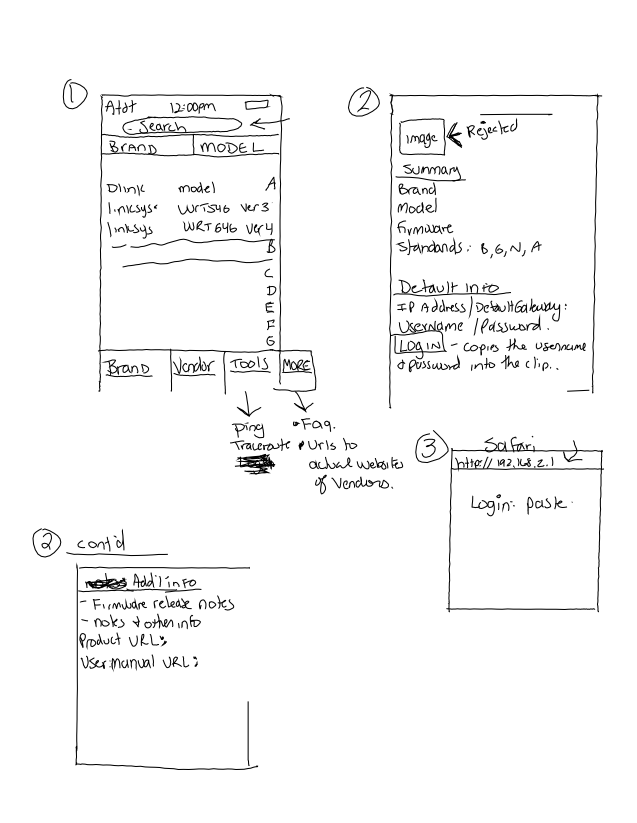 1
At&t 12:00pm
Search
BRAND MODEL
Dlink model A
linksys WRT546 ver3
linksys WRT646 ver4
B
C
D
E
F
G
Brand Vendor TOOLS MORE
Ping
Traceroute
• Faq.
• Urls to
actual websites
of Vendors.
2
image Rejected
Summary
Brand
Model
Firmware
Standards: B, G, N, A
Default info
IP Address/Default Gateway:
Username /Password.
LOGIN - copies the username
& password into the clip..
3
Safari
http://192.168.2.1
Login: paste.
2 cont'd
Add'l info
- Firmware release notes
- notes & other info
Product URL:
User manual URL: